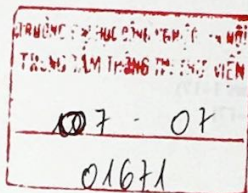 TRƯỜNG ĐẠI HỌC CÔNG NGHIỆP HÀ NỘI
TRUNG TÂM THÔNG TIN THƯ VIỆN
007 - 07
01671